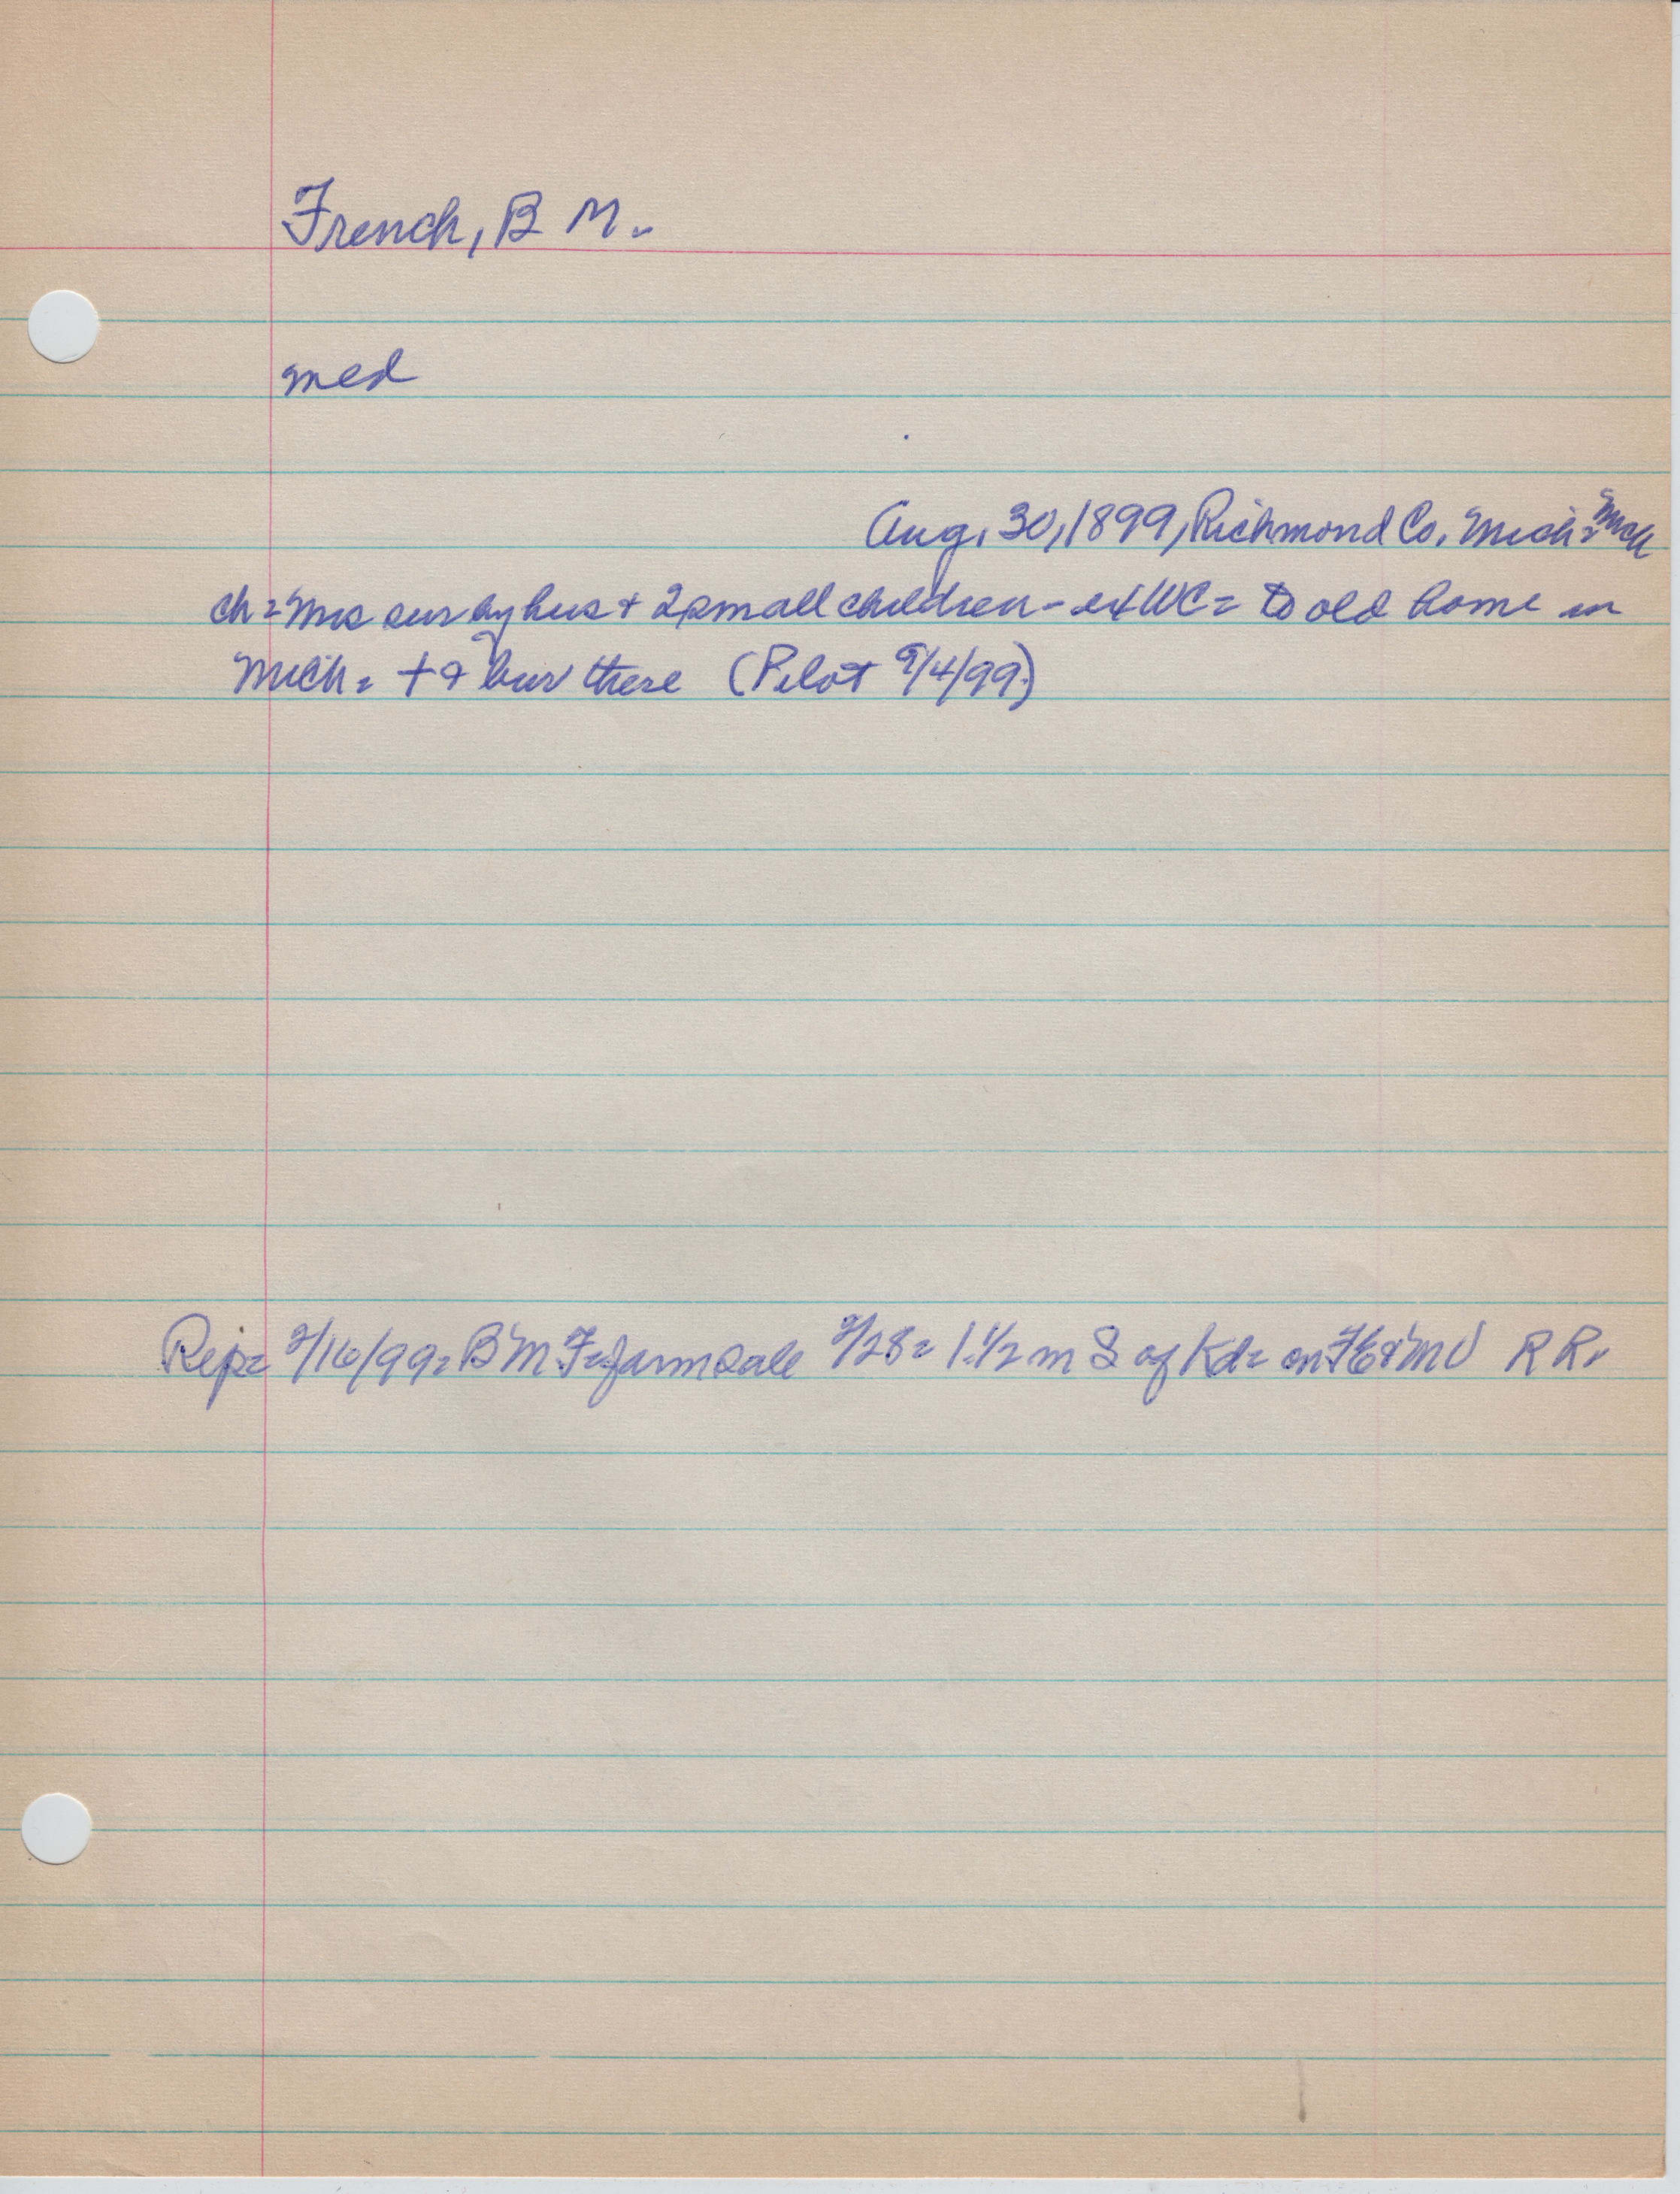 French, B M.
med
Aug. 30, 1899, Richmond Co. Mich = Mich
ch = Mrs sur by hus + 2 small children - ex WC = to old home in
Mich = + & bur there (Pilot 9/4/99)
Rep = 2/16/99 = B M F = farm sale 2/28 = 1 1/2 m S of Kd = on F E & M V R R.